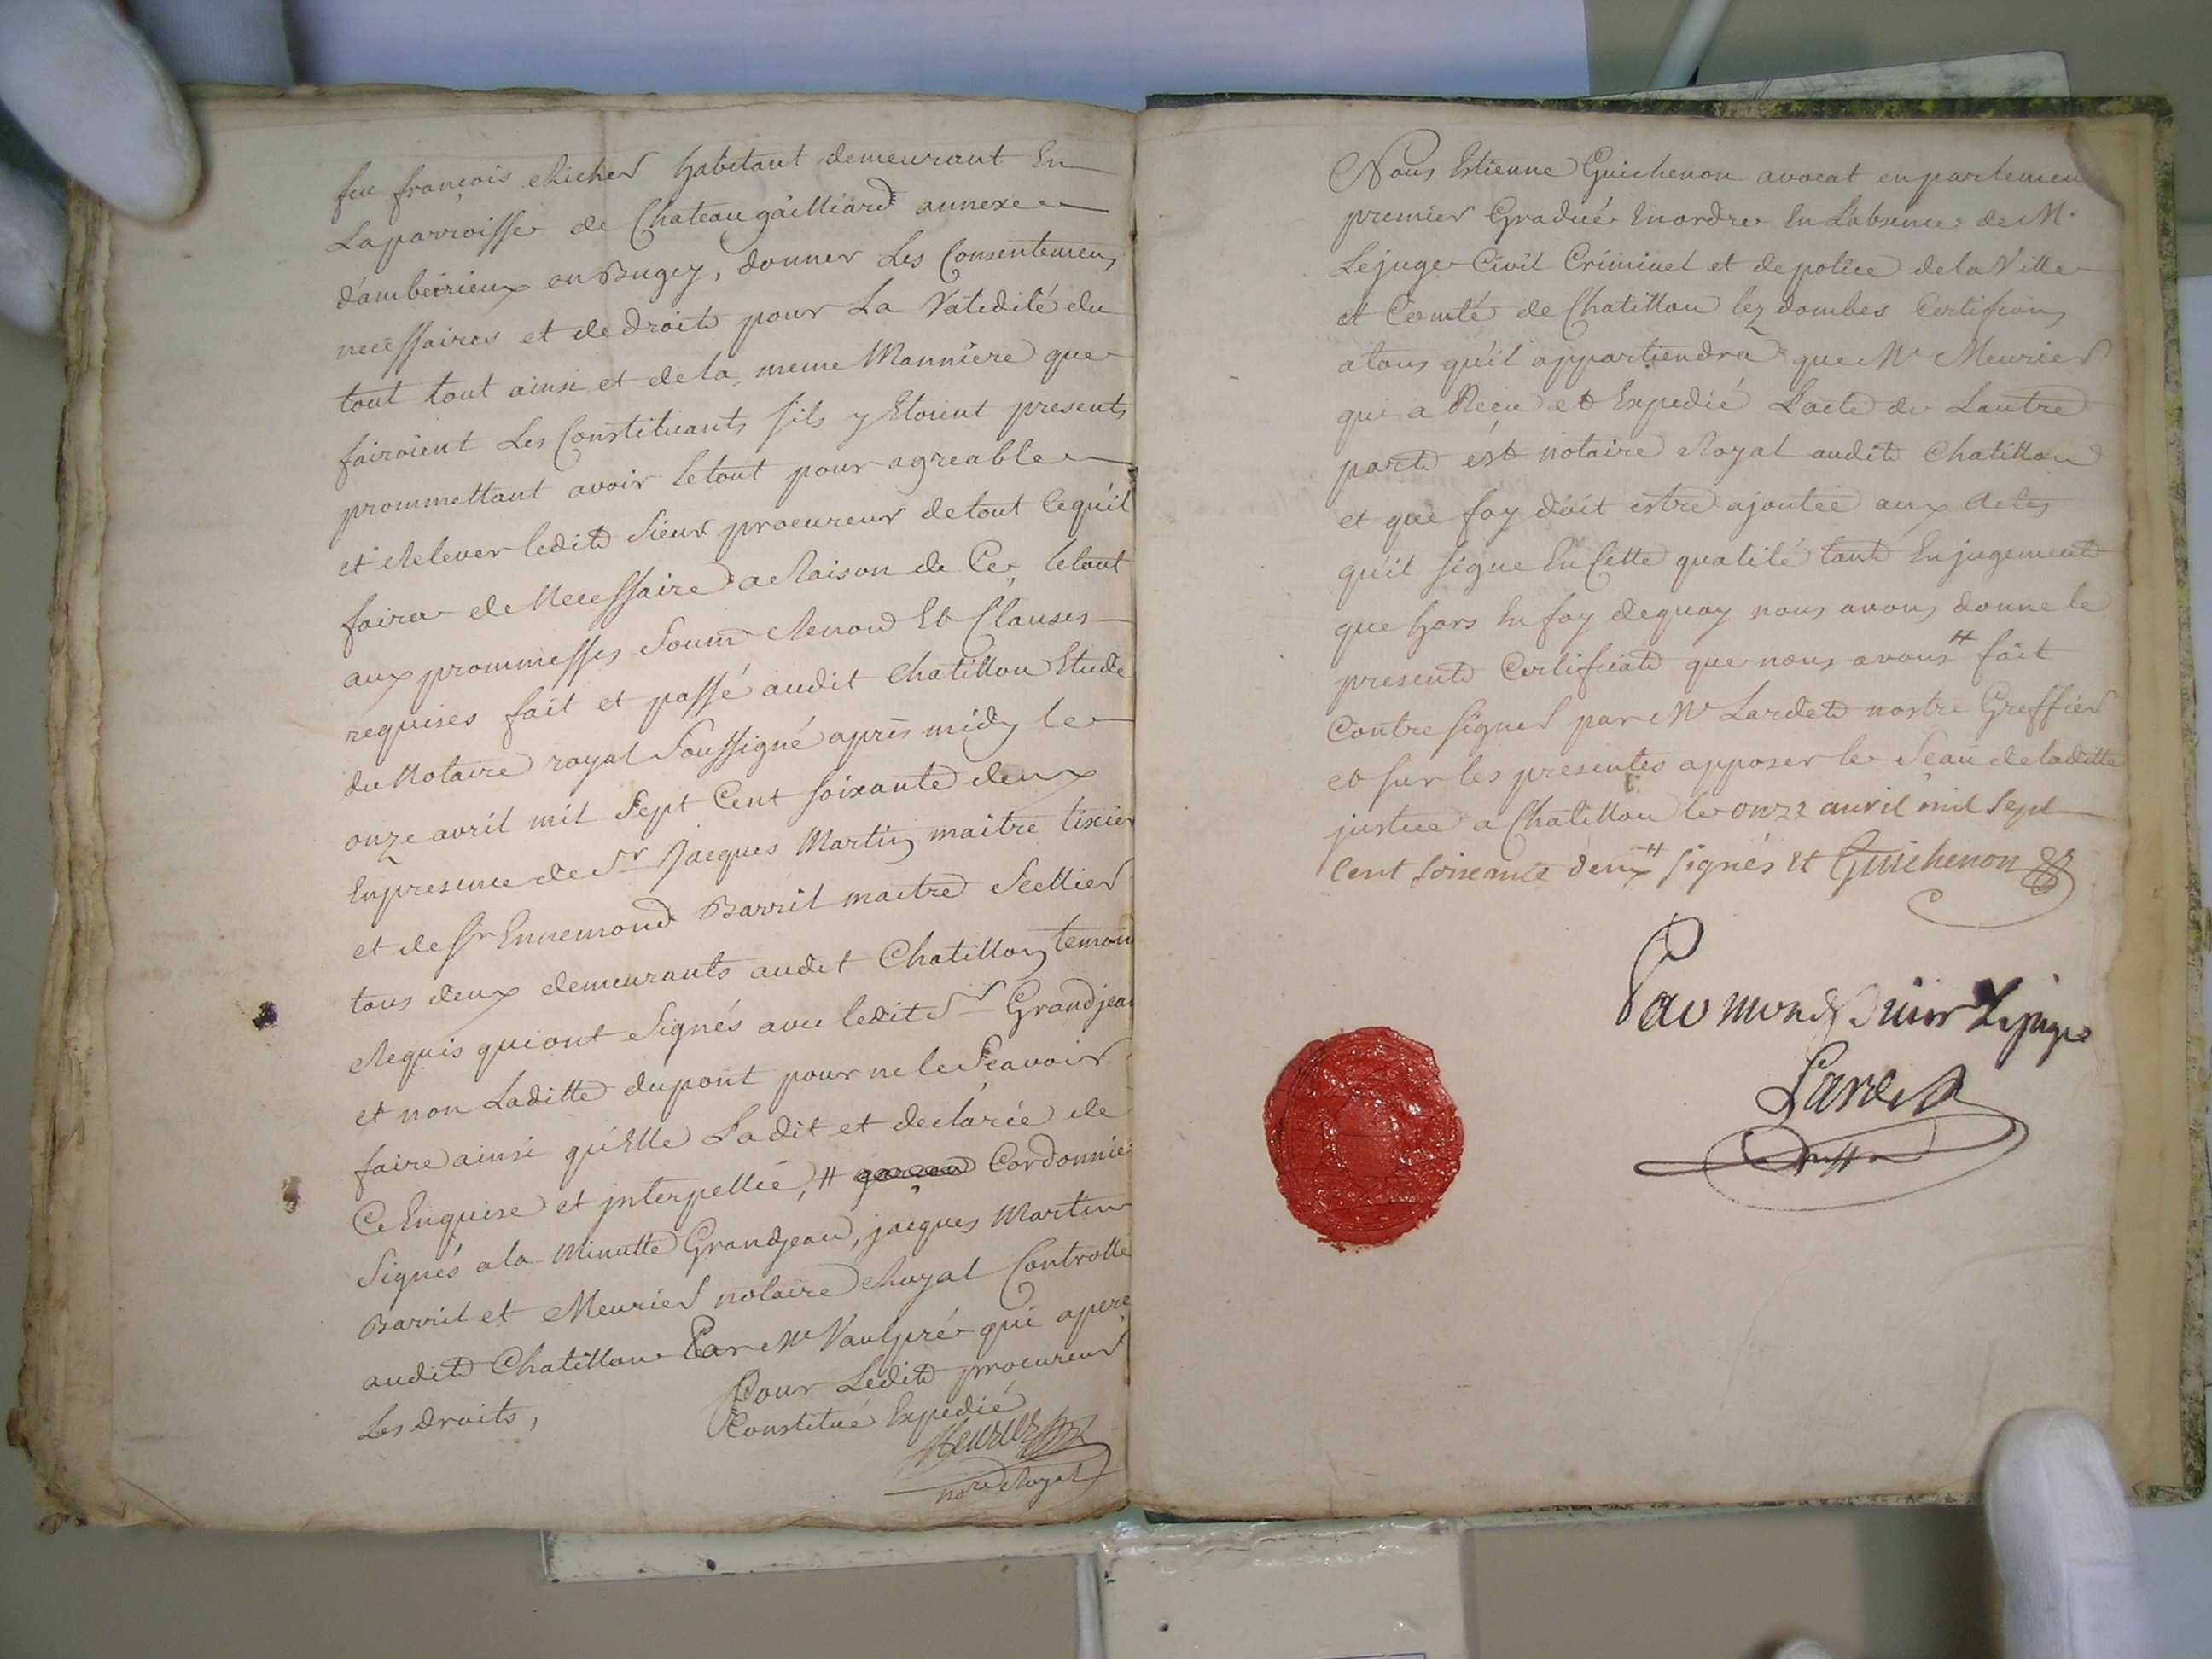 feu françois Richer habitant demeurant En
Laparroisse de Chateaugailliard annexe
d'amberieux en Bugey, donner Les Consentemens
necessaires et de droit pour La Validité du
tout tout ainsi et dela meme Manniere que
fairoient Les Constituants sils y Etoient presents
prommettant avoir letout pour agreable
et Relever ledit Sieur procureur detout Cequ'il
faira de Necessaire a Raison de Ce, letout
aux prommesses Soum Renon Et Clauses
requises fait et passé audit Chatillon Etude
du Notaire royal Soussigné après midy le
onze avril mil Sept Cent soixante deux
Enpresence de Sr Jacques Martin maitre tixier
et de Sr Ennemond Barril maitre Sellier
tous deux demeurants audit Chatillon temoin
Requis qui ont Signés avec ledit Sr Grandjean
et non Laditte dupont pour ne le Scavoir
faire ainsi qu'Elle La dit et declarée de
Ce Enquise et jnterpellée, # Cordonnier
Signés a la Minutte Grandjean, jacques Martin
Barril et Meurier notaire Royal Controlle
audit Chatillon Par Mr Vaulpré qui apere
Les Droits,
Pour Ledit procureur
Constitué Expedié
Meurier
nore Royal
Nous Estienne Guichenon avocat en partemen
premier Gradué Enordre En Labsence de M.
Lejuge Civil Criminel et depolice dela Ville
et Comté de Chatillon lez dombes Certifions
atous qu'il appartiendra que Mr Meurier
qui a Recu et Expedié Lacte de Lautre
part est notaire Royal audit Chatillon
et que foy doit estre ajoutée aux Actes
qu'il signe En Cette qualité tant Enjugement
que hors En foy dequoy nous avons donne le
present Certificat que nous avons # fait
Contresigner par Mr Lardet nostre Greffier
et sur les presentes apposer le Seau deladitte
justice a Chatillon le onze avril mil sept
Cent soixante deux # signés Et Guichenon
Lejuge
Lardet